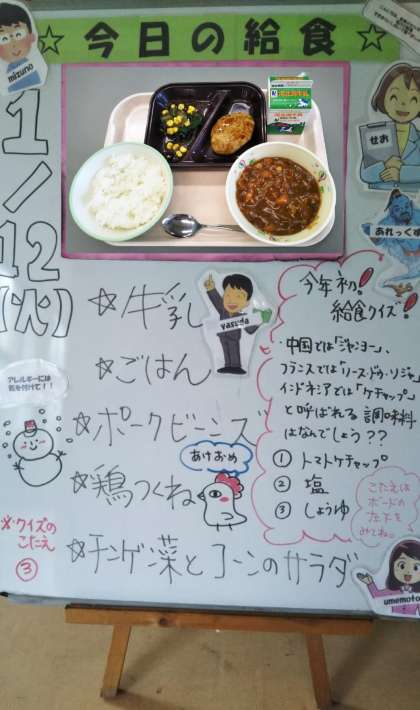 ☆今日の給食☆
mizuno
せお
あれっくす
1/12(火)
☆牛乳
yasuda
☆ごはん
☆ポークビーンズ
あけおめ
☆鶏つくね
☆チンゲン菜とコーンのサラダ
アレルギーには
気を付けて!!
※クイズの
こたえ
③
今年初!
給食クイズ!
中国では「ジャンヨー」、
フランスでは「ソース・ドゥ・ソジャ」、
インドネシアでは「ケチャップ」
と呼ばれる調味料
はなんでしょう??
① トマトケチャップ
② 塩
③ しょうゆ
こたえは
ボードの
左下を
みてね。
umemoto